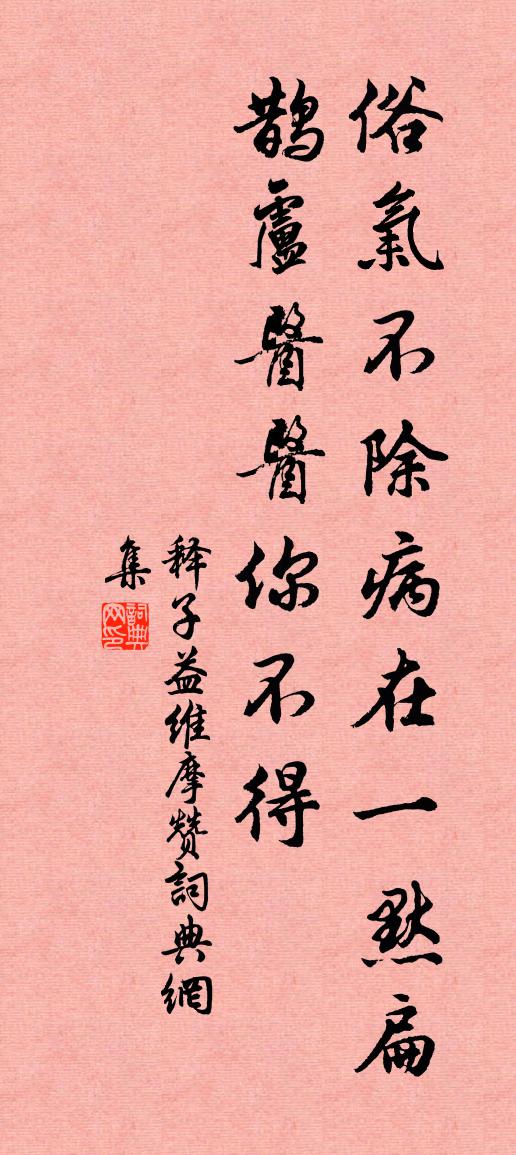 俗氣不除病在一默扁
鵲盧醫醫你不得
释子益維摩赞詞典網
集
詞典網印